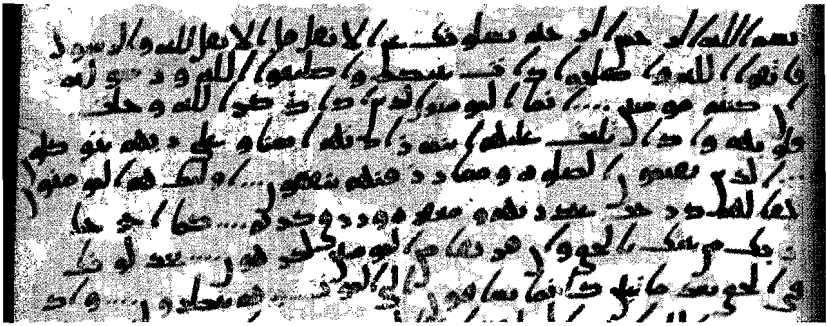 بسم الله الرحمن الرحيم يسلونك عن الانفل قل الانفل لله والرسول
فاتقوا الله واصلحوا ذات بينكم واطيعوا الله ورسوله
ان كنتم مومنين انما المومنون الذين اذا ذكر الله وجلت
قلوبهم واذا تليت عليهم ايته زادتهم ايمنا وعلى ربهم يتوكلون
الذين يقيمون الصلوه ومما رزقنهم ينفقون اولئك هم المومنون
حقا لهم درجت عند ربهم ومغفره ورزق كريم كما اخرجك
ربك من بيتك بالحق وان فريقا من المومنين لكرهون يجدلونك
في الحق بعد ما تبين كانما يساقون الى الموت وهم ينظرون واذ